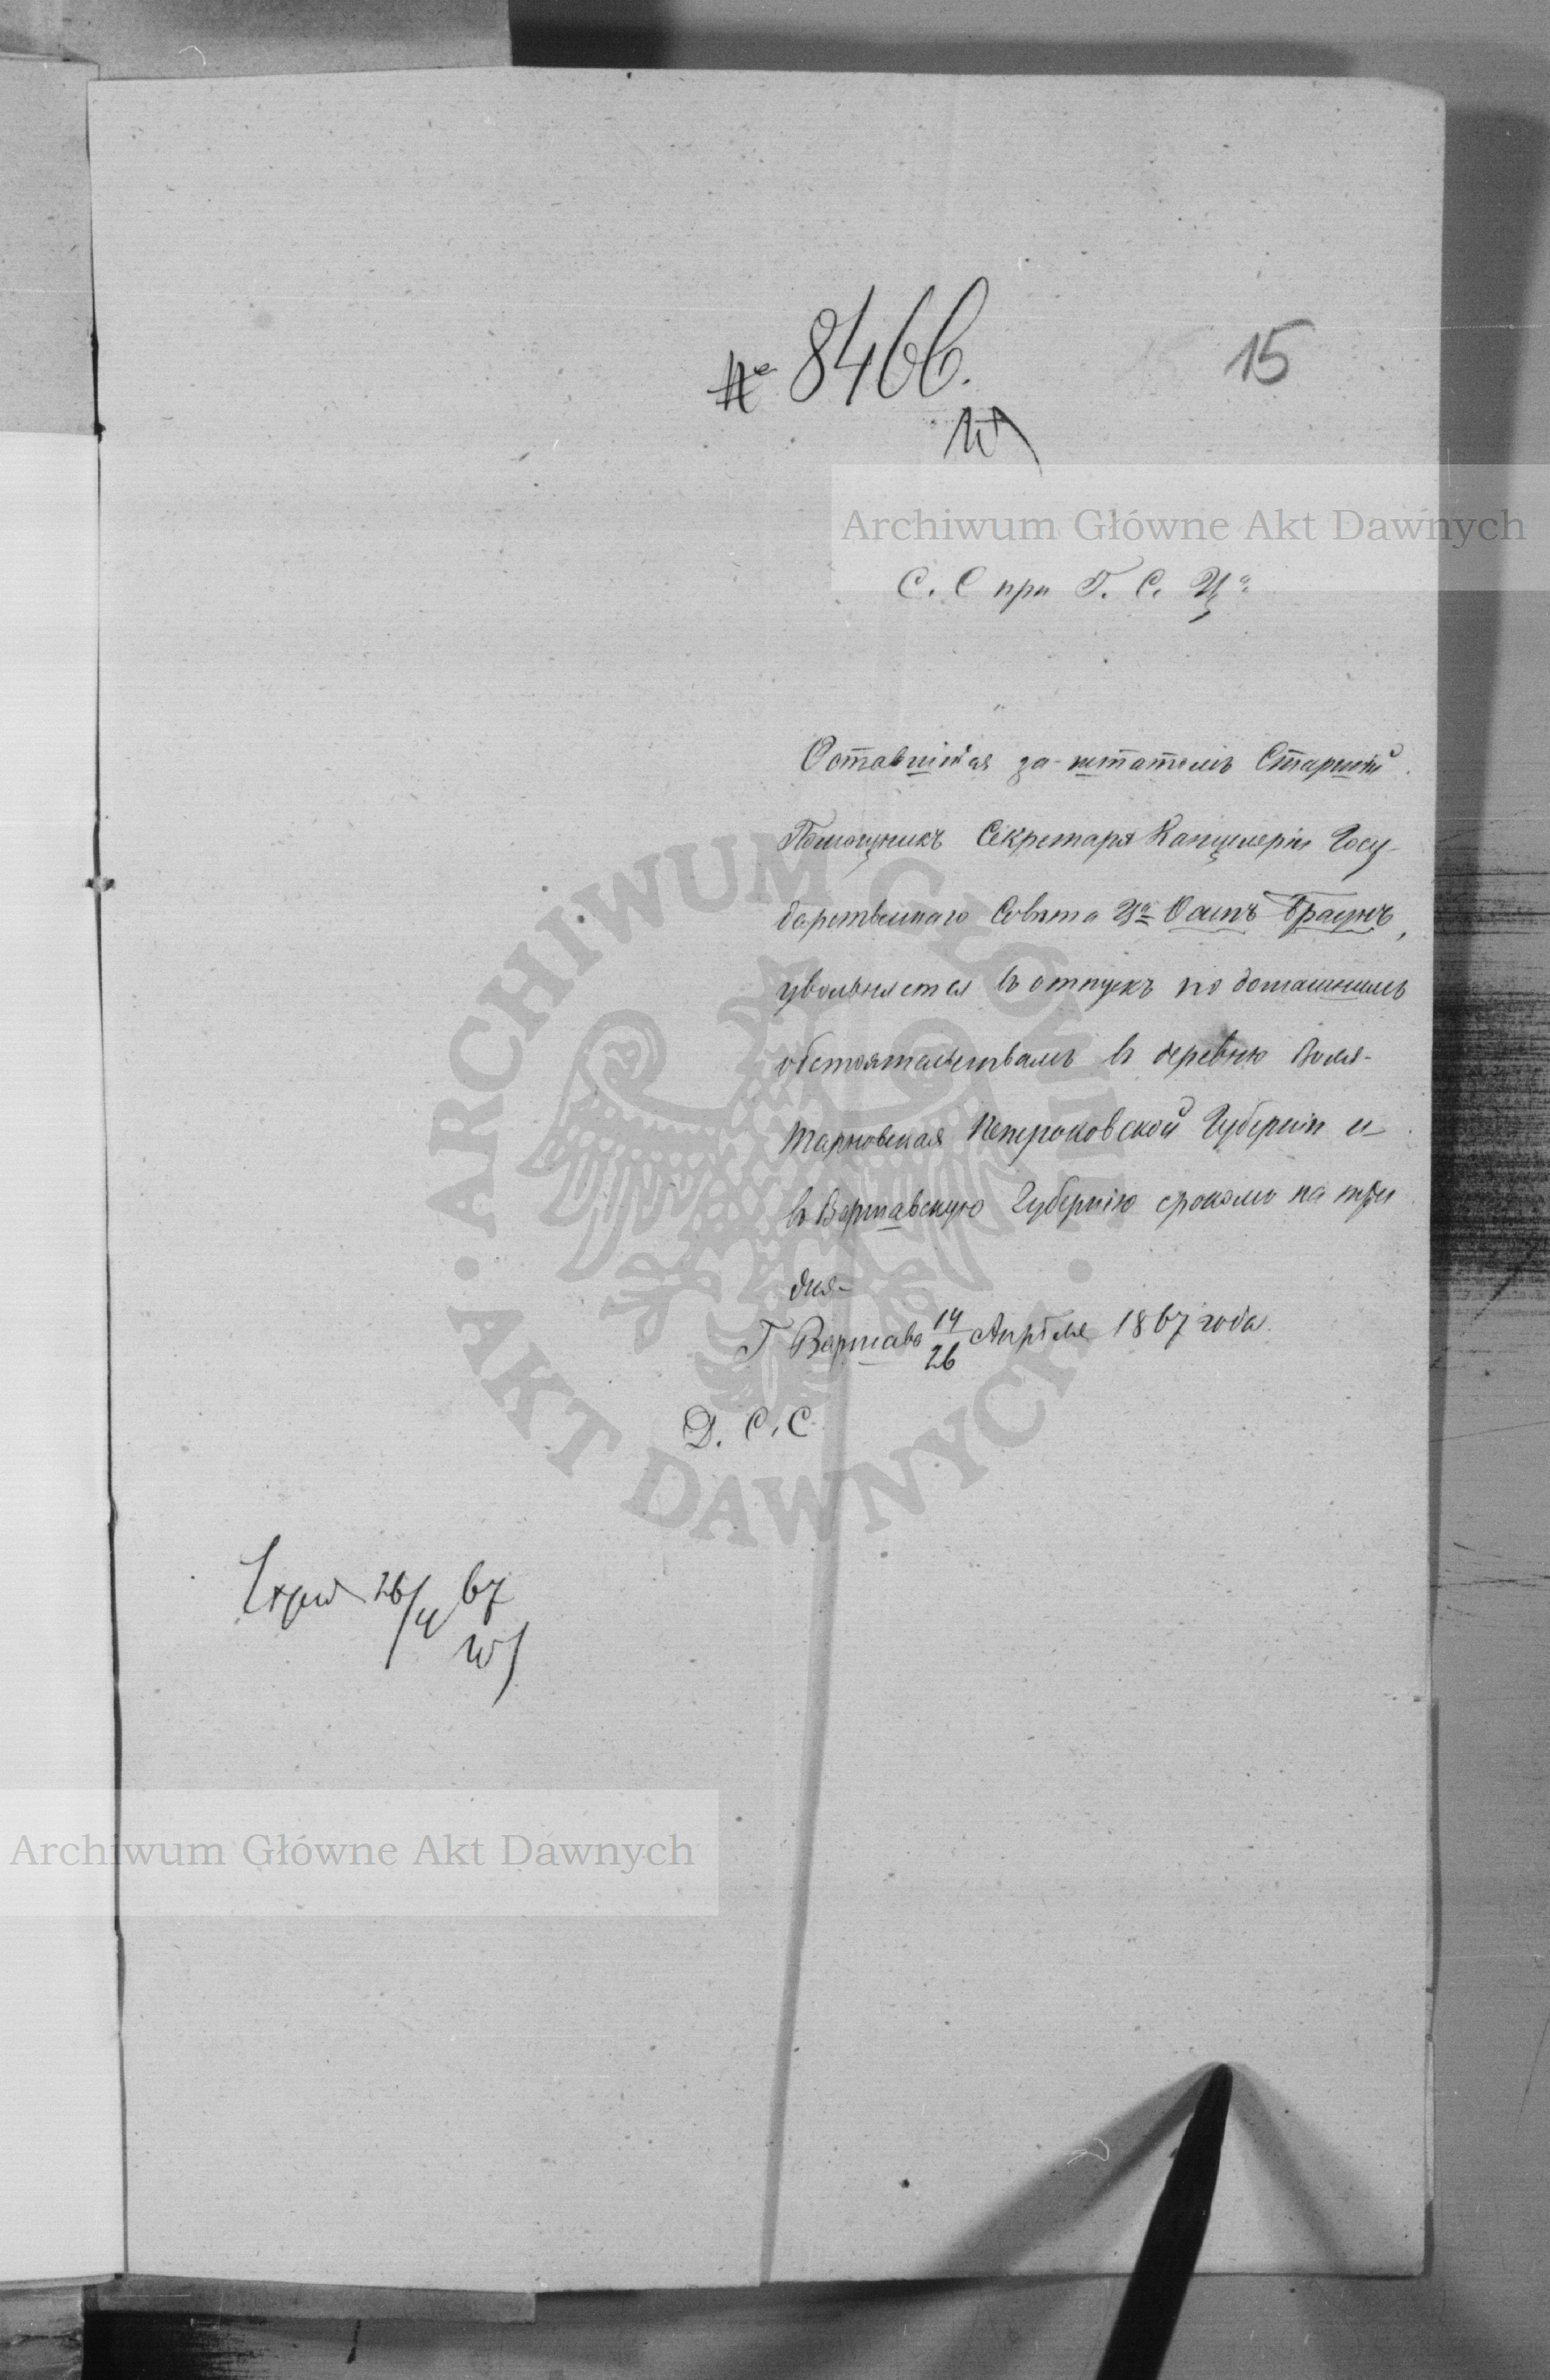 № 8466.
15
Archiwum Główne Akt Dawnych
С. С при Г. С. Ца
Оставшійся за-штатомъ Старшій
Помощникъ Секретаря Канцеляріи Госу-
дарственнаго Совѣта Ца Осипъ Браунъ,
увольняется въ отпускъ по домашнимъ
обстоятельствамъ въ деревню Воля-
Тарновская Петроковской Губерніи и
въ Варшавскую Губернію срокомъ на три
дня-
Г Варшава 14/26 Апрѣля 1867 года.
Д. С. С
26/4 67
Archiwum Główne Akt Dawnych
ARCHIWUM GŁÓWNE AKT DAWNYCH